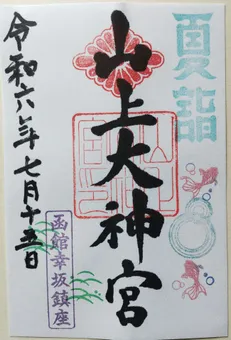 夏詣
山上大神宮
令和六年七月十五日
函館幸坂鎮座